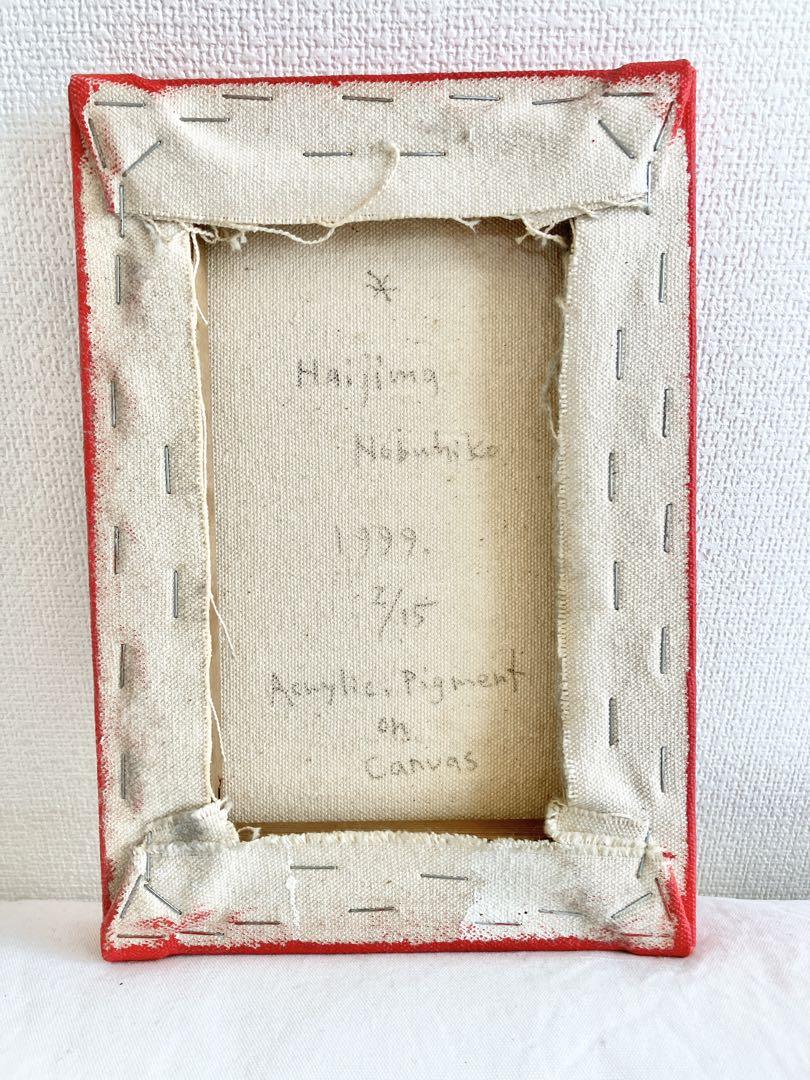 Haijima
Nobuhiko
1999.
2/15
Acrylic, Pigment
on
Canvas